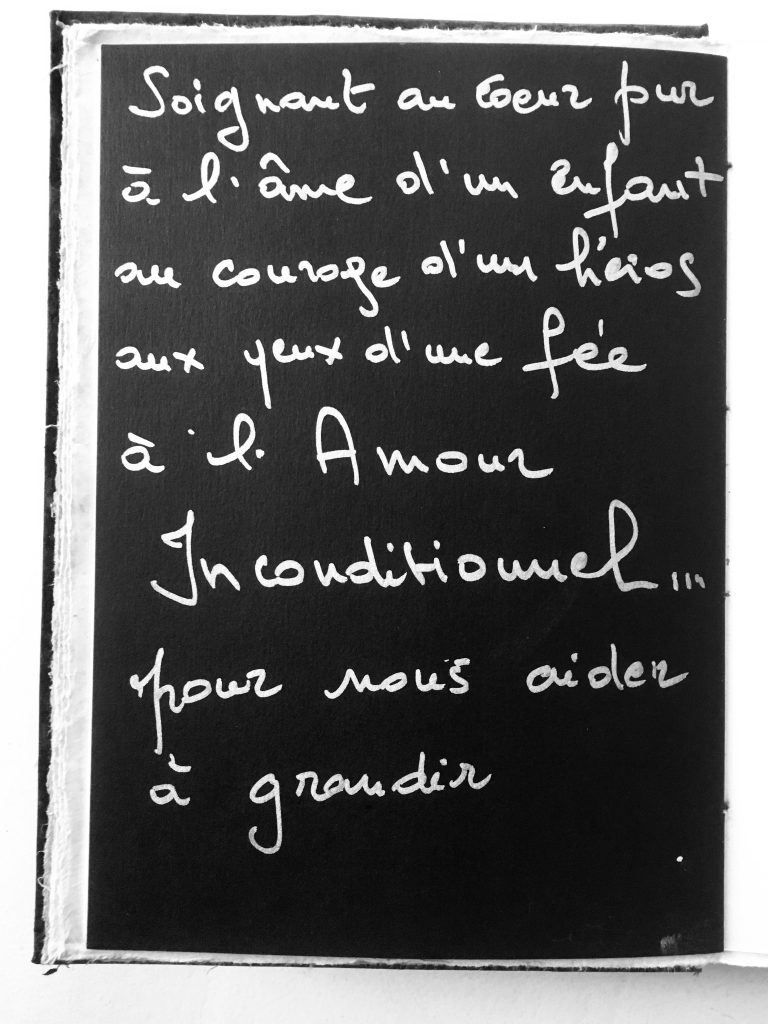 Soignant au coeur pur
à l'âme d'un enfant
au courage d'un héros
aux yeux d'une fée
à l'Amour
Inconditionnel...
pour nous aider
à grandir